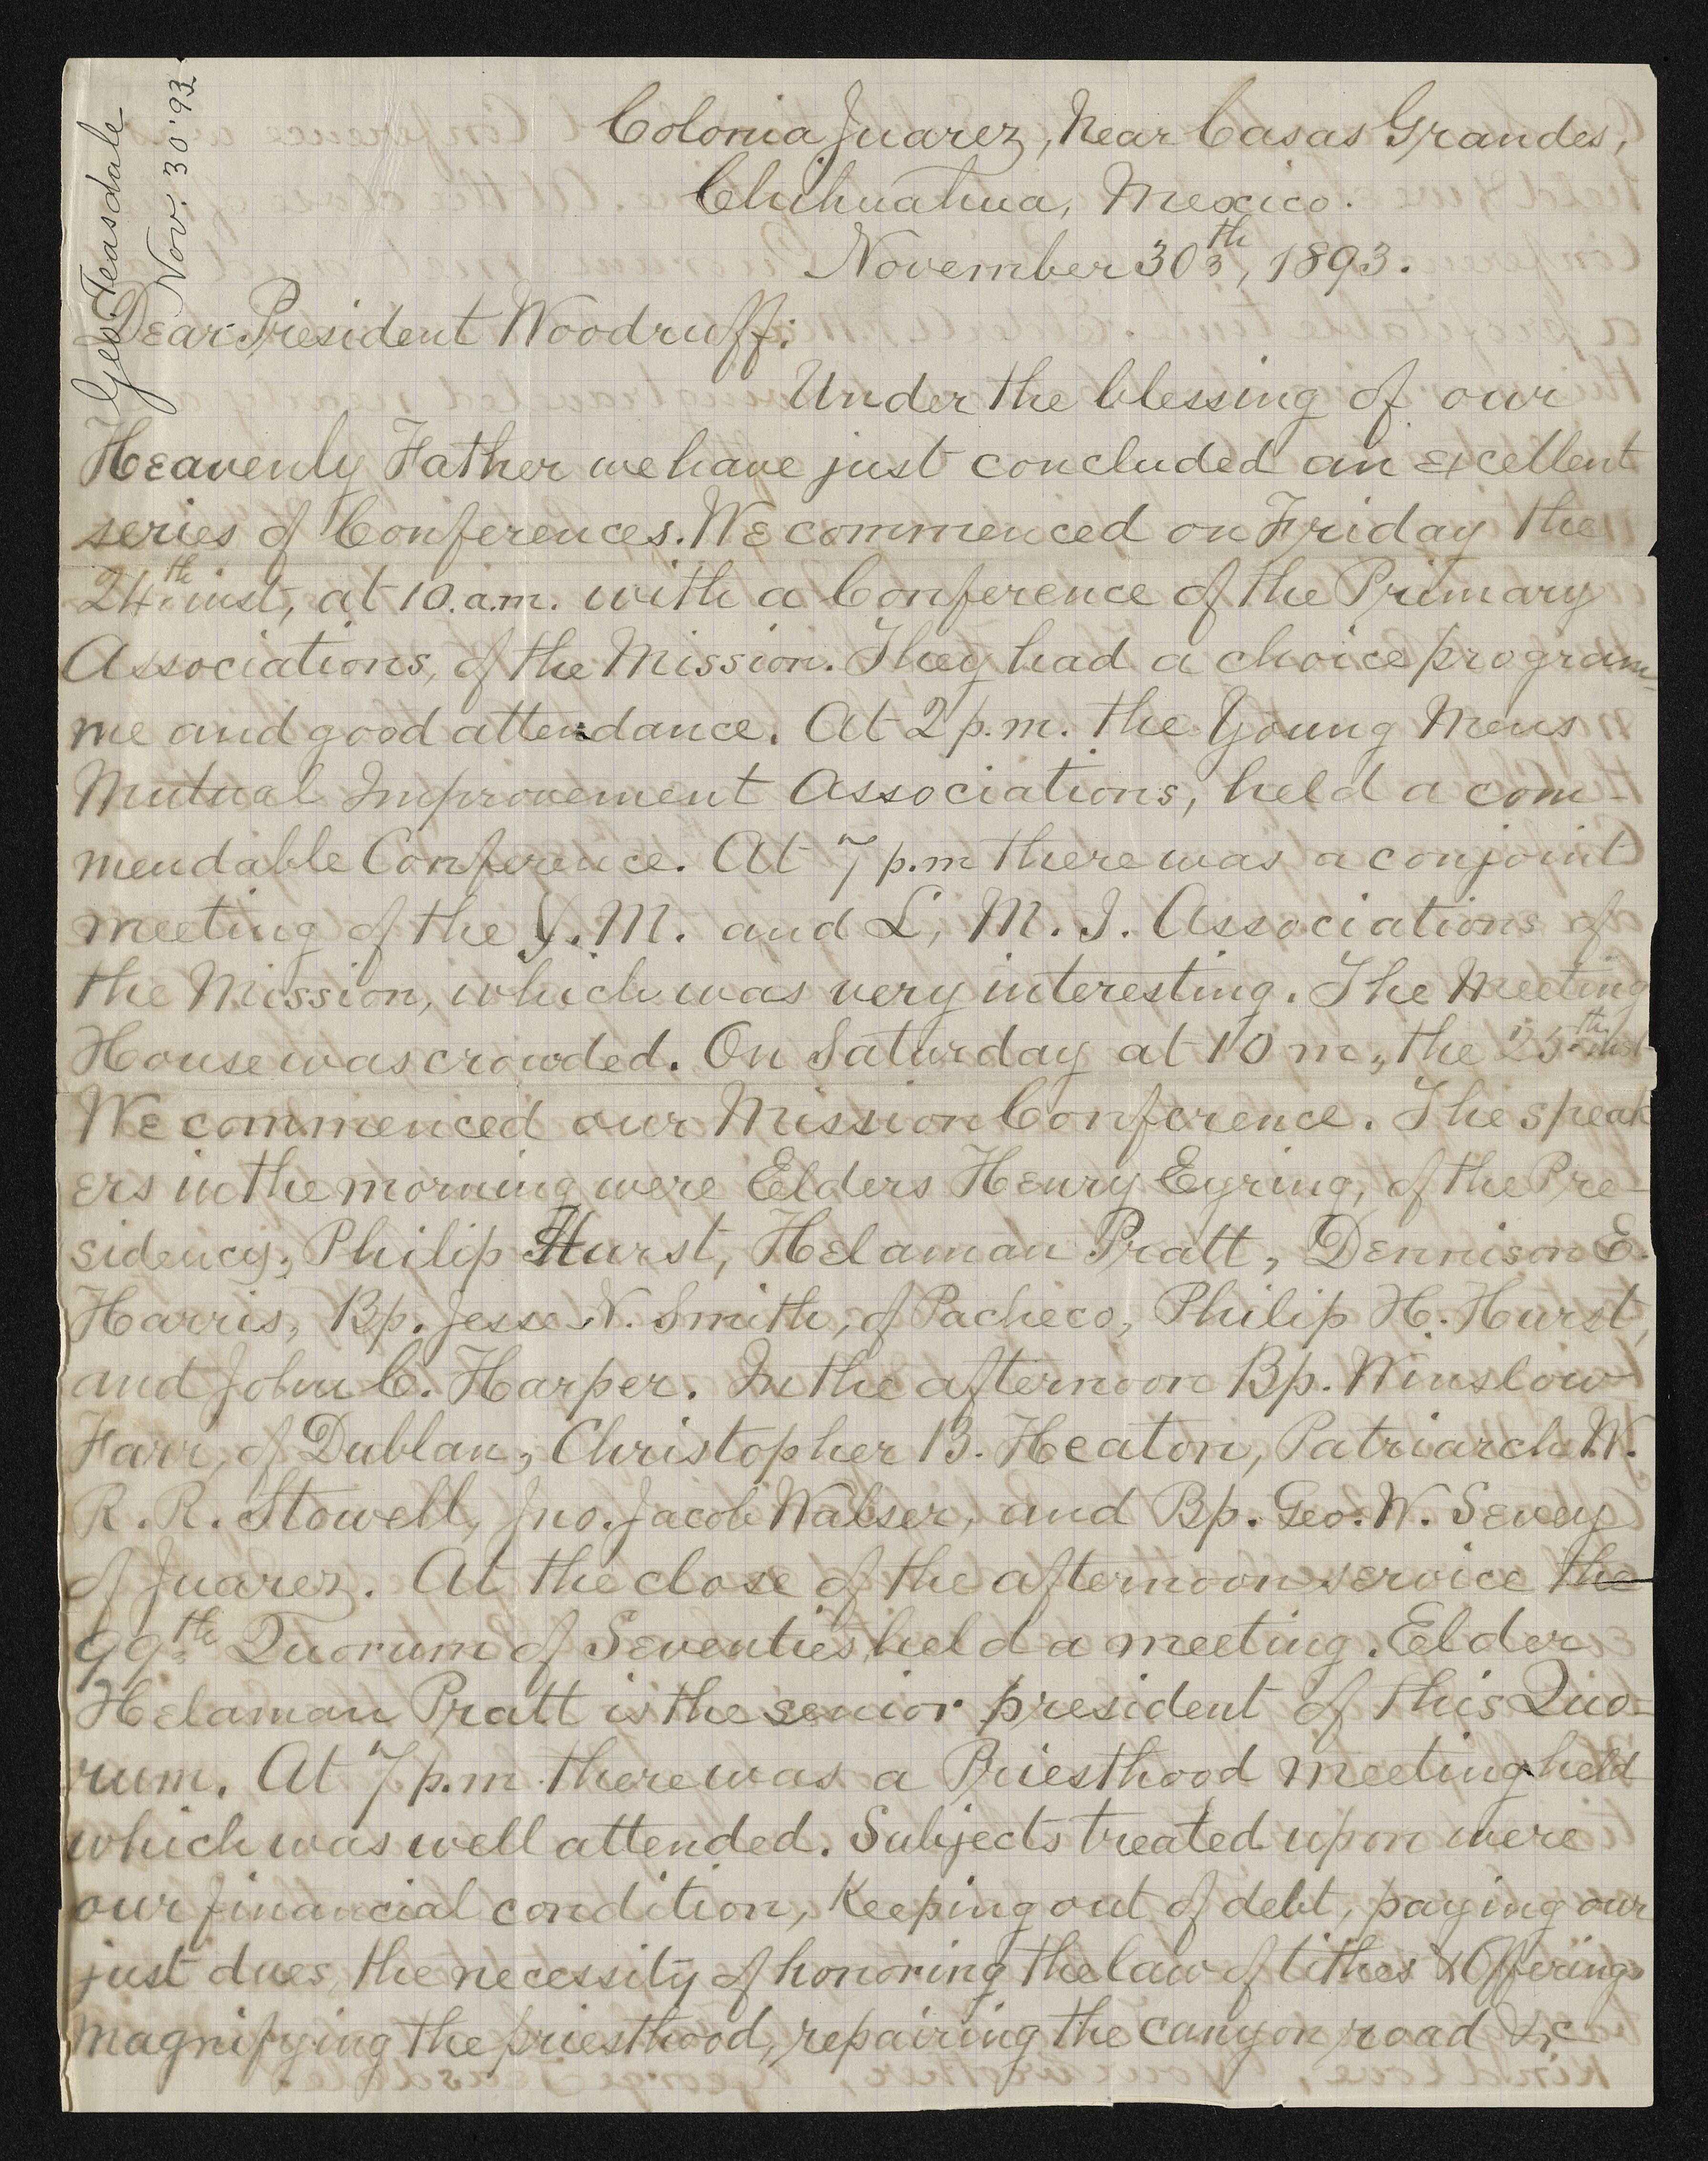 Geo. Teasdale
Nov. 30 '93
Colonia Juarez, Near Casas Grandes,
Chihuahua, Mexico.
November 30th, 1893.
Dear President Woodruff:
Under the blessing of our
Heavenly Father we have just concluded an excellent
series of Conferences. We commenced on Friday the
24th inst, at 10. a.m. with a Conference of the Primary
Associations, of the Mission. They had a choice program-
me and good attendance. At 2 p.m. the Young Mens
Mutual Improvement Associations, held a com-
mendable Conference. At 7 p.m there was a conjoint
meeting of the Y. M. and L, M. I. Associations of
the Mission, which was very interesting. The Meeting
House was crowded. On Saturday at 10 m., the 25th inst
We commenced our Mission Conference. The speak
ers in the morning were Elders Henry Eyring, of the Pre-
sidency, Philip Hurst, Helaman Pratt, Dennison E.
Harris, Bp. Jesse N. Smith, of Pacheco, Philip H. Hurst,
and John C. Harper. In the afternoon Bp. Winslow
Farr, of Dublan, Christopher B. Heaton, Patriarch W.
R. R. Stowell, Jno. Jacob Walser, and Bp. Geo. W. Sevey
of Juarez. At the close of the afternoon service the
99th Quorum of Seventies held a meeting. Elder
Helaman Pratt is the senior president of this Quo-
rum. At 7 p.m. there was a Priesthood meeting held
which was well attended. Subjects treated upon were
our financial condition, Keeping out of debt, paying our
just dues, the necessity of honoring the law of tithes & Offerings
magnifying the priesthood, repairing the canyon road &c